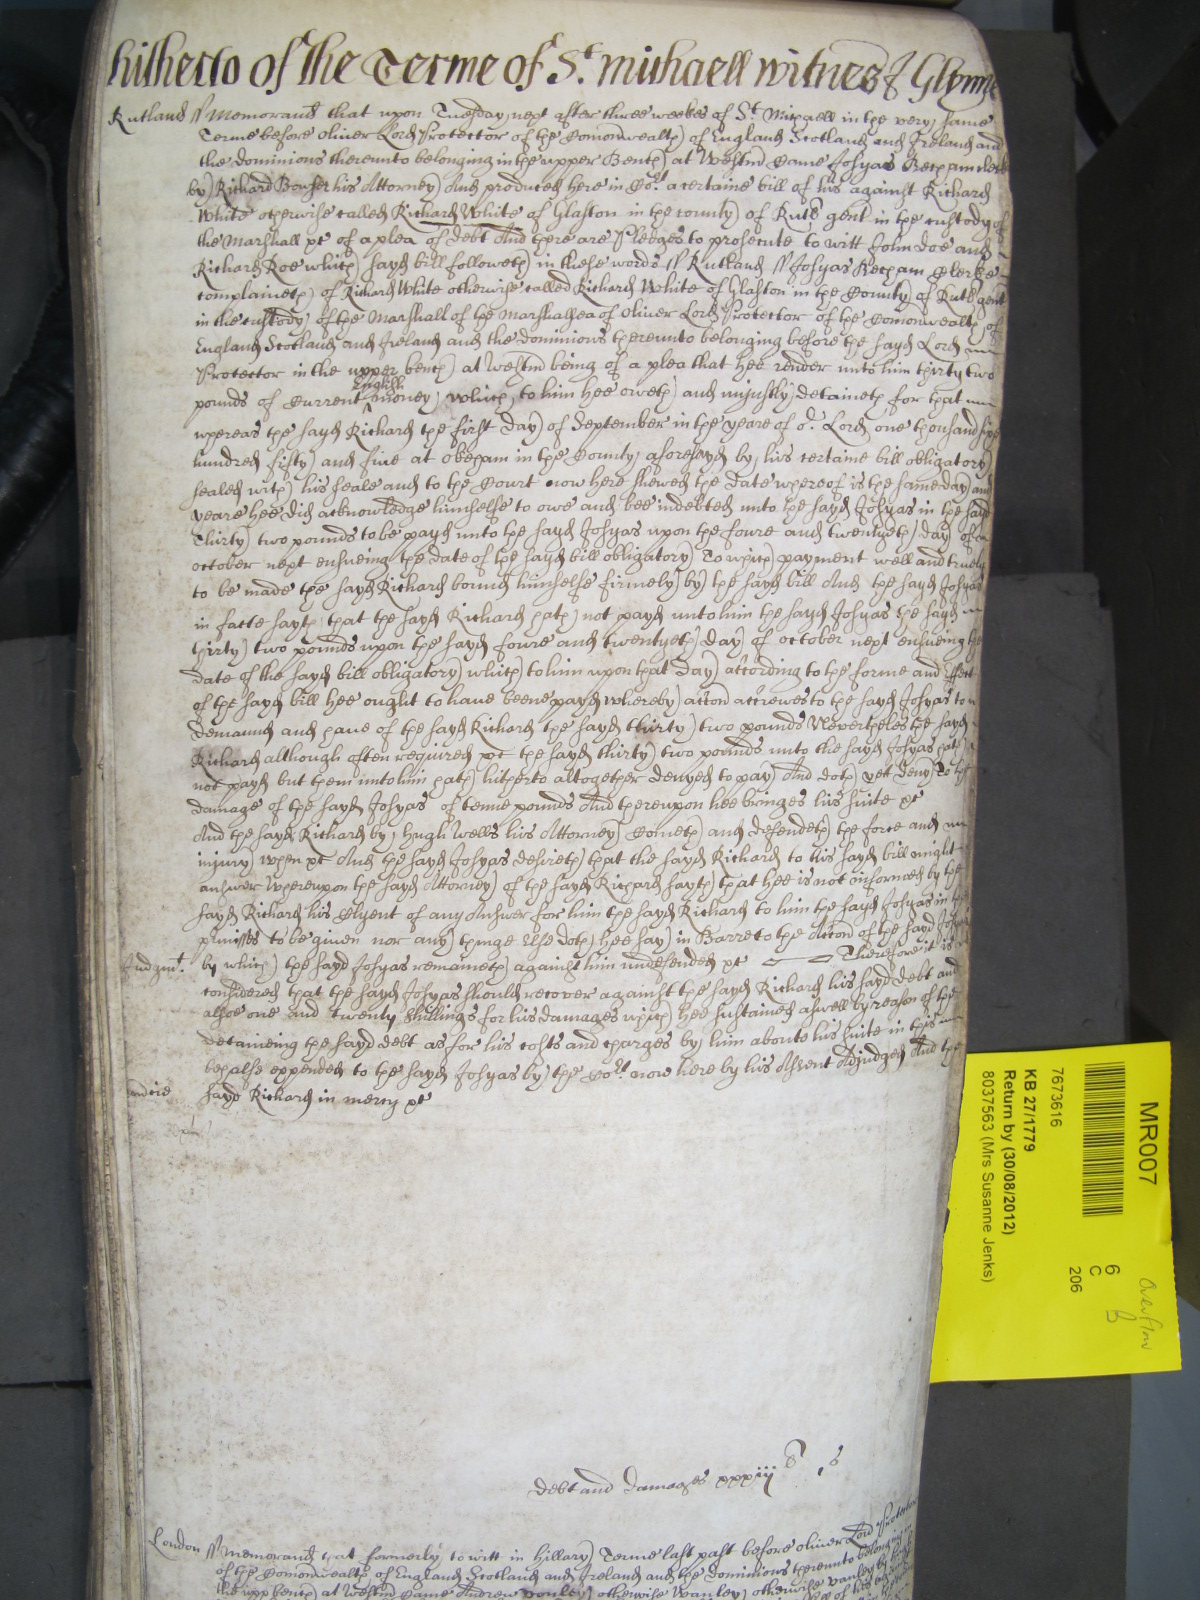 hitherto of the Terme of St. michaell witnes J Glynne
Rutland ss Memorand that upon Tuesday next after three weekes of St Michaell in the very same
Terme before Oliver Lord Protector of the Comonwealth of England Scotland and Ireland and
the dominions thereunto belonging in the upper Bench at Westm Came Josyas Recham clerk
by Richard Bonser his Attorney And produced here in Cort a certaine bill of his against Richard
White otherwise called Richard White of Glaston in the county of Rutl gent in the custody of
the Marshall &c of a plea of debt And there are Pledges to prosecute to witt John Doe and
Richard Roe which sayd bill followeth in these words ss Rutland ss Josyas Recham Clerke
complaineth of Richard White otherwise called Richard White of Glaston in the County of Rutl gent
in the custody of the Marshall of the Marshalsea of Oliver Lord Protector of the Comonwealth of
England Scotland and Ireland and the dominions thereunto belonging before the sayd Lord
Protector in the upper bench at Westm being of a plea that hee render unto him thirty two
pounds of Current English money which to him hee oweth and unjustly detaineth for that
whereas the sayd Richard the first day of September in the yeare of or Lord one thousand sixe
hundred fifty and five at Okeham in the County aforesayd by his certaine bill obligatory
sealed with his seale and to the Court now here shewed the date whereof is the same day and
yeare hee did acknowledge himselfe to owe and bee indebted unto the sayd Josyas in the sayd
Thirty two pounds to be payd unto the sayd Josyas upon the foure and twentyeth day of
october next ensueing the date of the sayd bill obligatory To which payment well and truely
to be made the sayd Richard bound himselfe firmely by the sayd bill And the sayd Josyas
in facte sayth that the sayd Richard hath not payd unto him the sayd Josyas the sayd
thirty two pounds upon the sayd foure and twentyeth day of october next ensueing the
date of the sayd bill obligatory which to him upon that day according to the forme and effect
of the sayd bill hee ought to have beene payd whereby accon accrewes to the sayd Josyas to
demaund and have of the sayd Richard the sayd thirty two pounds Neverthelesse the sayd
Richard although often required &c the sayd thirty two pounds unto the sayd Josyas hath
not payd but them unto him hath hitherto altogether denyed to pay And doth yett deny To the
damage of the sayd Josyas of tenne pounds And thereupon hee bringes his suite &c
And the sayd Richard by Hugh Wells his Attorney Cometh and defendeth the force and
injury when &c And the sayd Josyas desireth that the sayd Richard to his sayd bill might
answer Whereupon the sayd Attorney of the sayd Richard sayth that hee is not informed by the
sayd Richard his Clyent of any Answer for him the sayd Richard to him the sayd Josyas in the
pmisses to be given nor any thinge else doth hee say in Barre to the Accon of the sayd Josyas
Judgmt. by which the sayd Josyas remaineth against him undefended &c Therefore it is
considered that the sayd Josyas should recover against the sayd Richard his sayd debt and
alsoe one and twenty shillings for his damages which hee sustained aswell by reason of the
detaineing the sayd debt as for his costs and charges by him about his suite in this
behalfe expended to the sayd Josyas by the Cort now here by his Assent Adjudged And the
mercie sayd Richard in mercy &c
debt and damages xxxiij l j s
London ss Memorand that formerly to witt in Hillary Terme last past before oliver Lord Protector
of the Comonwealth of England Scotland and Ireland and the dominions thereunto belonging in
the upp bench at Westm Came Andrew Vanley otherwise Wanley otherwise Vanley by
MR007
7673616
KB 27/1779
Return by (30/08/2012)
8037563 (Mrs Susanne Jenks)
6
C
206
Overflow
B